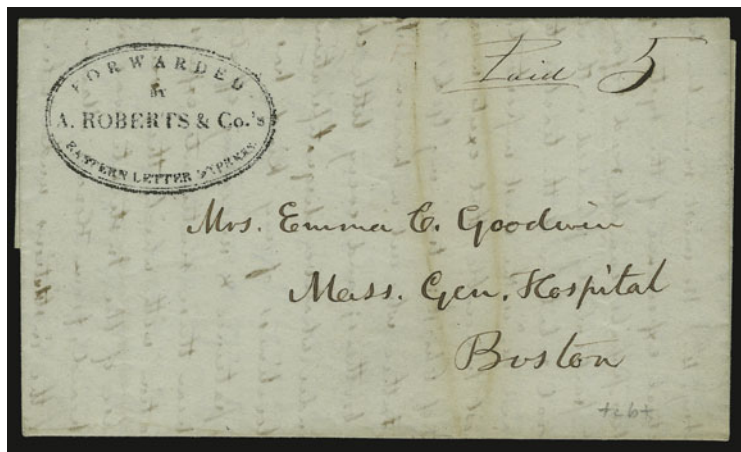 FORWARDED
BY
A. ROBERTS & Co.'s
EASTERN LETTER EXPRESS.
Paid 5
Mrs. Emma C. Goodwin
Mass. Gen. Hospital
Boston